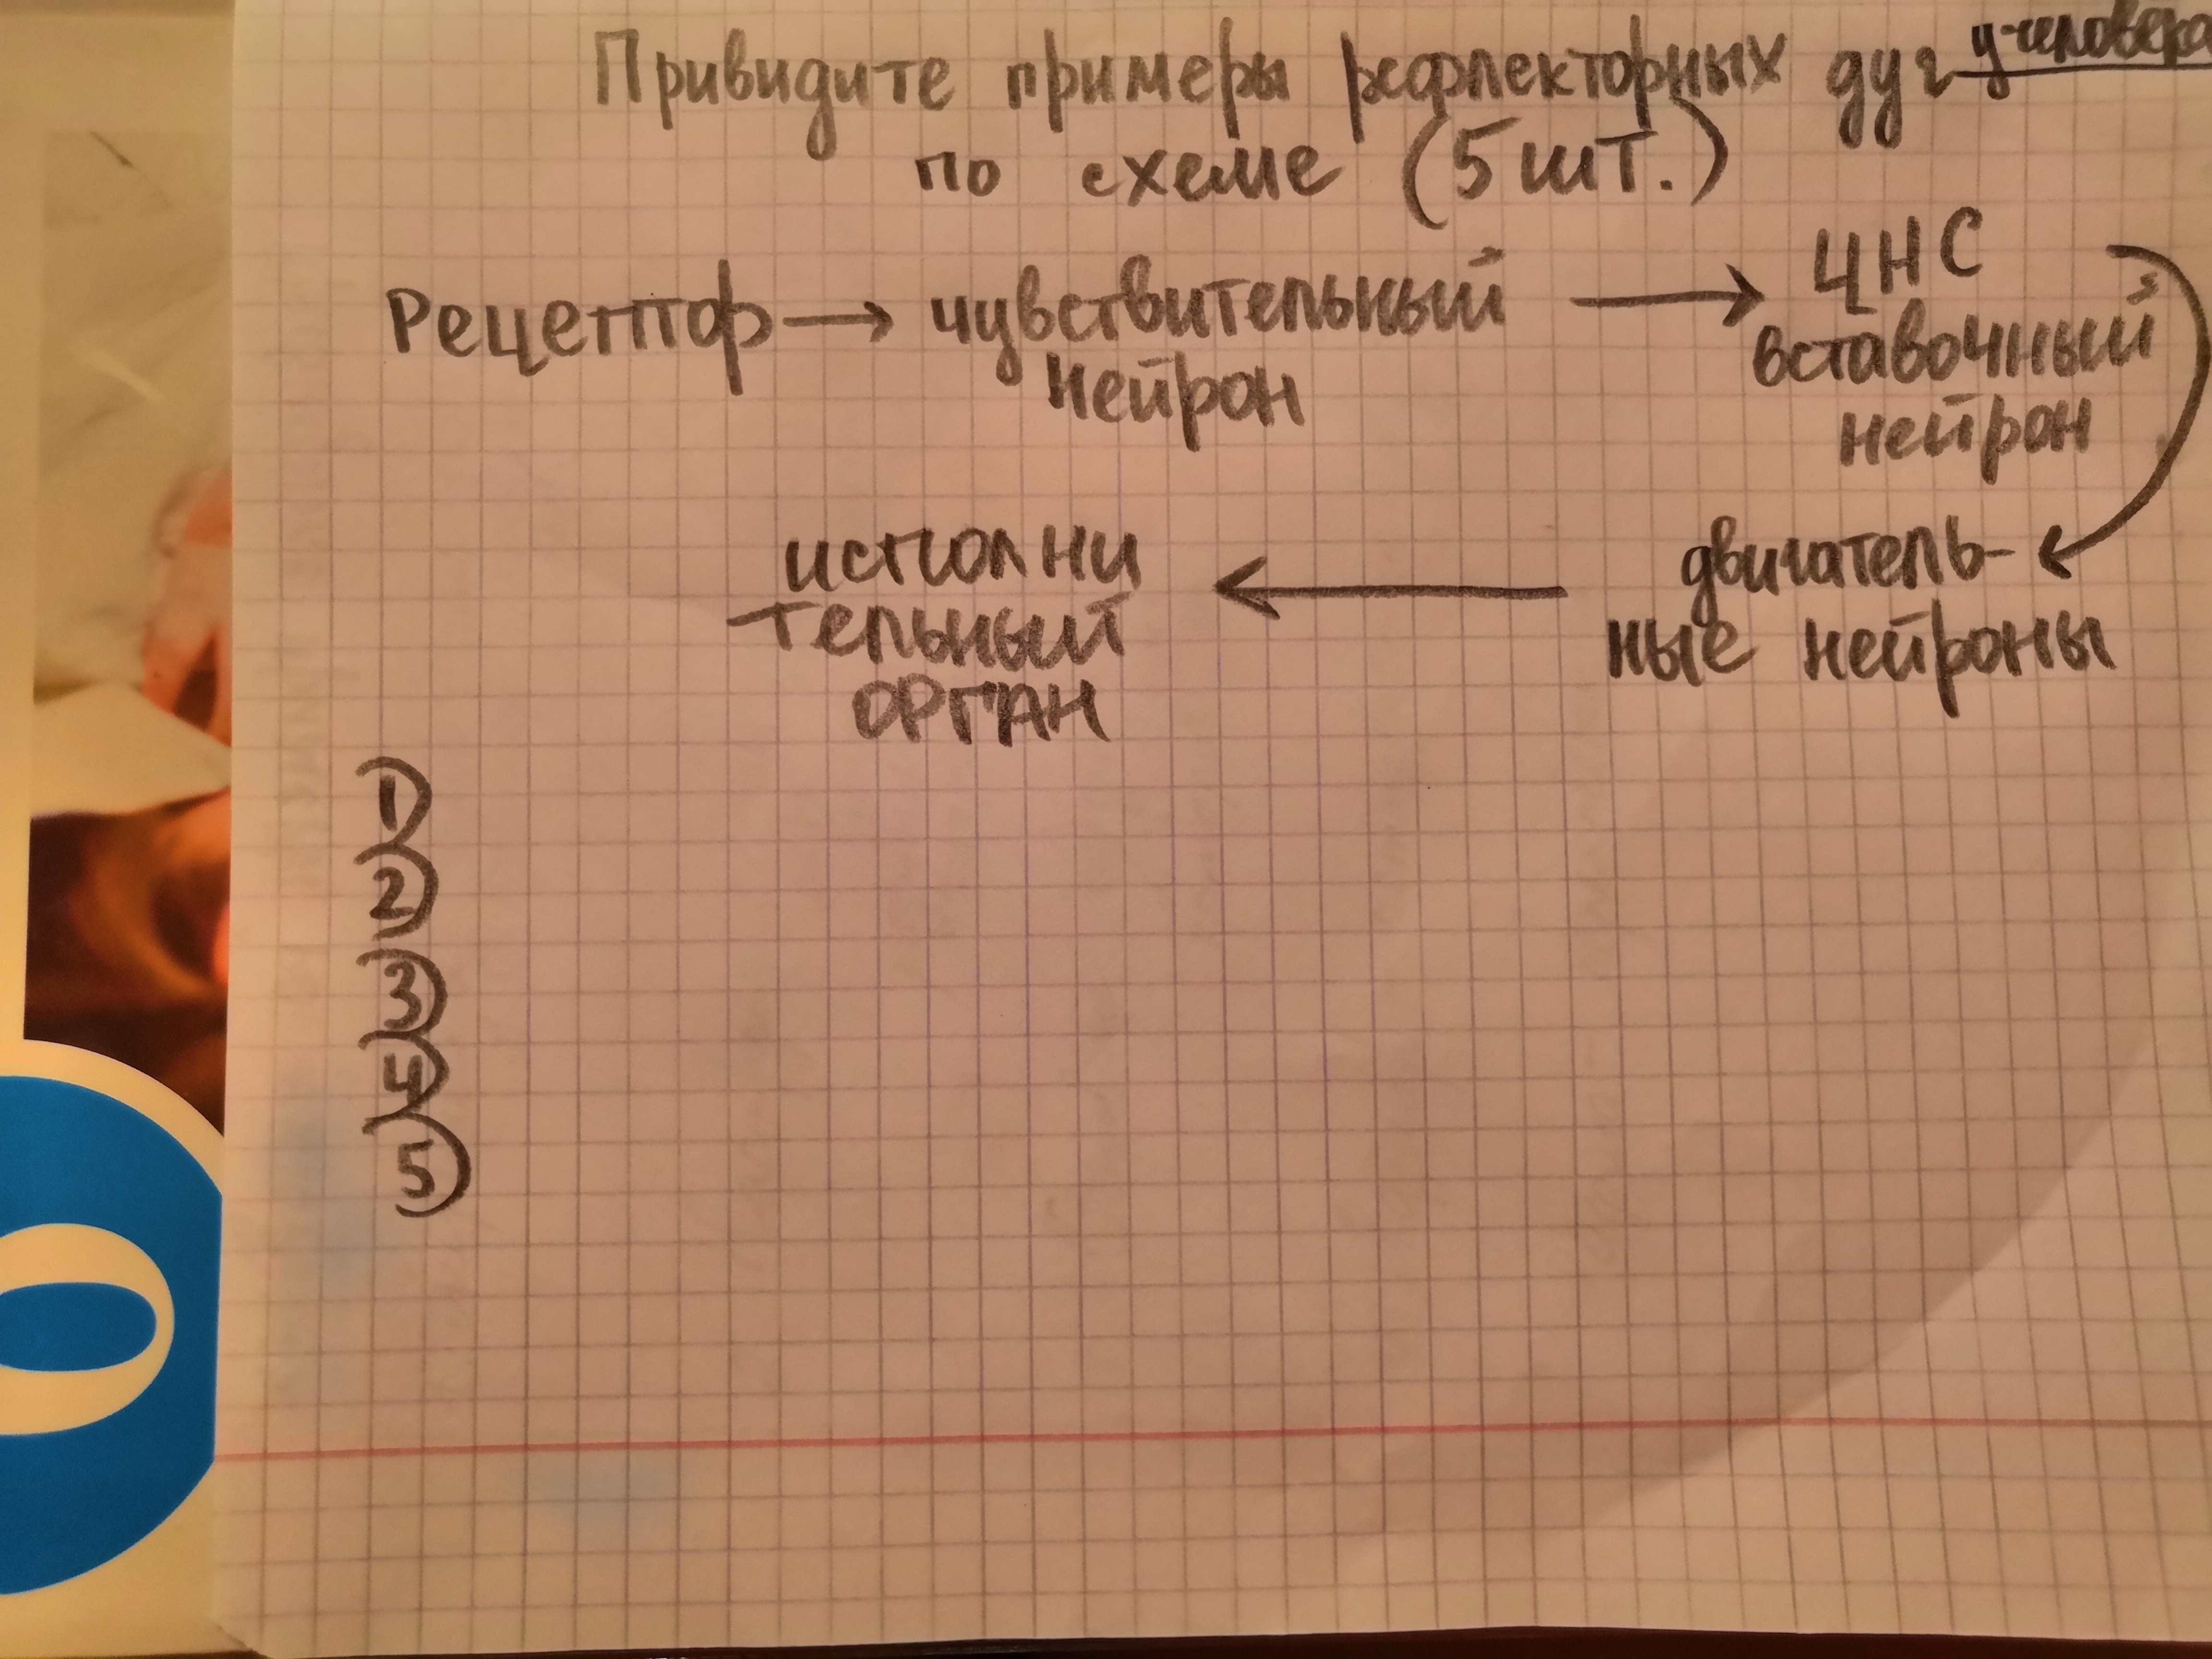 Привидите примеры рефлекторных дуг у человека
по схеме (5 шт.)
Рецептор → чувствительный нейрон → ЦНС вставочный нейрон
двигатель-
ные нейроны
исполни
тельный
орган
1)
2)
3)
4)
5)